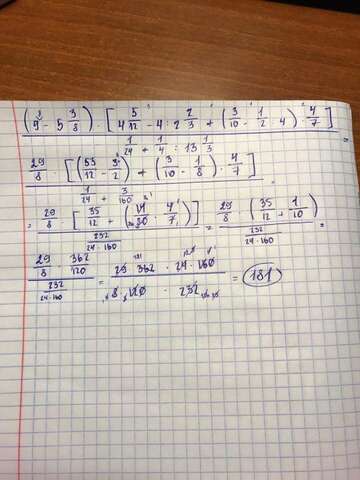 (9 - 5 3/8) · [4 5/12 - 4 : 2 2/3 + (3/10 - 1/2 : 4) · 4/7]
1/24 + 1/4 : 13 1/3
29/8 · [(53/12 - 3/2) + (3/10 - 1/8) · 4/7]
1/24 + 3/160
= 29/8 · [35/12 + (14/80 · 4/7)] / 232/24·160 = 29/8 · (35/12 + 1/10) / 232/24·160 =
29/8 · 362/120 / 232/24·160 = 29 · 362 · 24 · 160 / 8 · 120 · 232 = 181